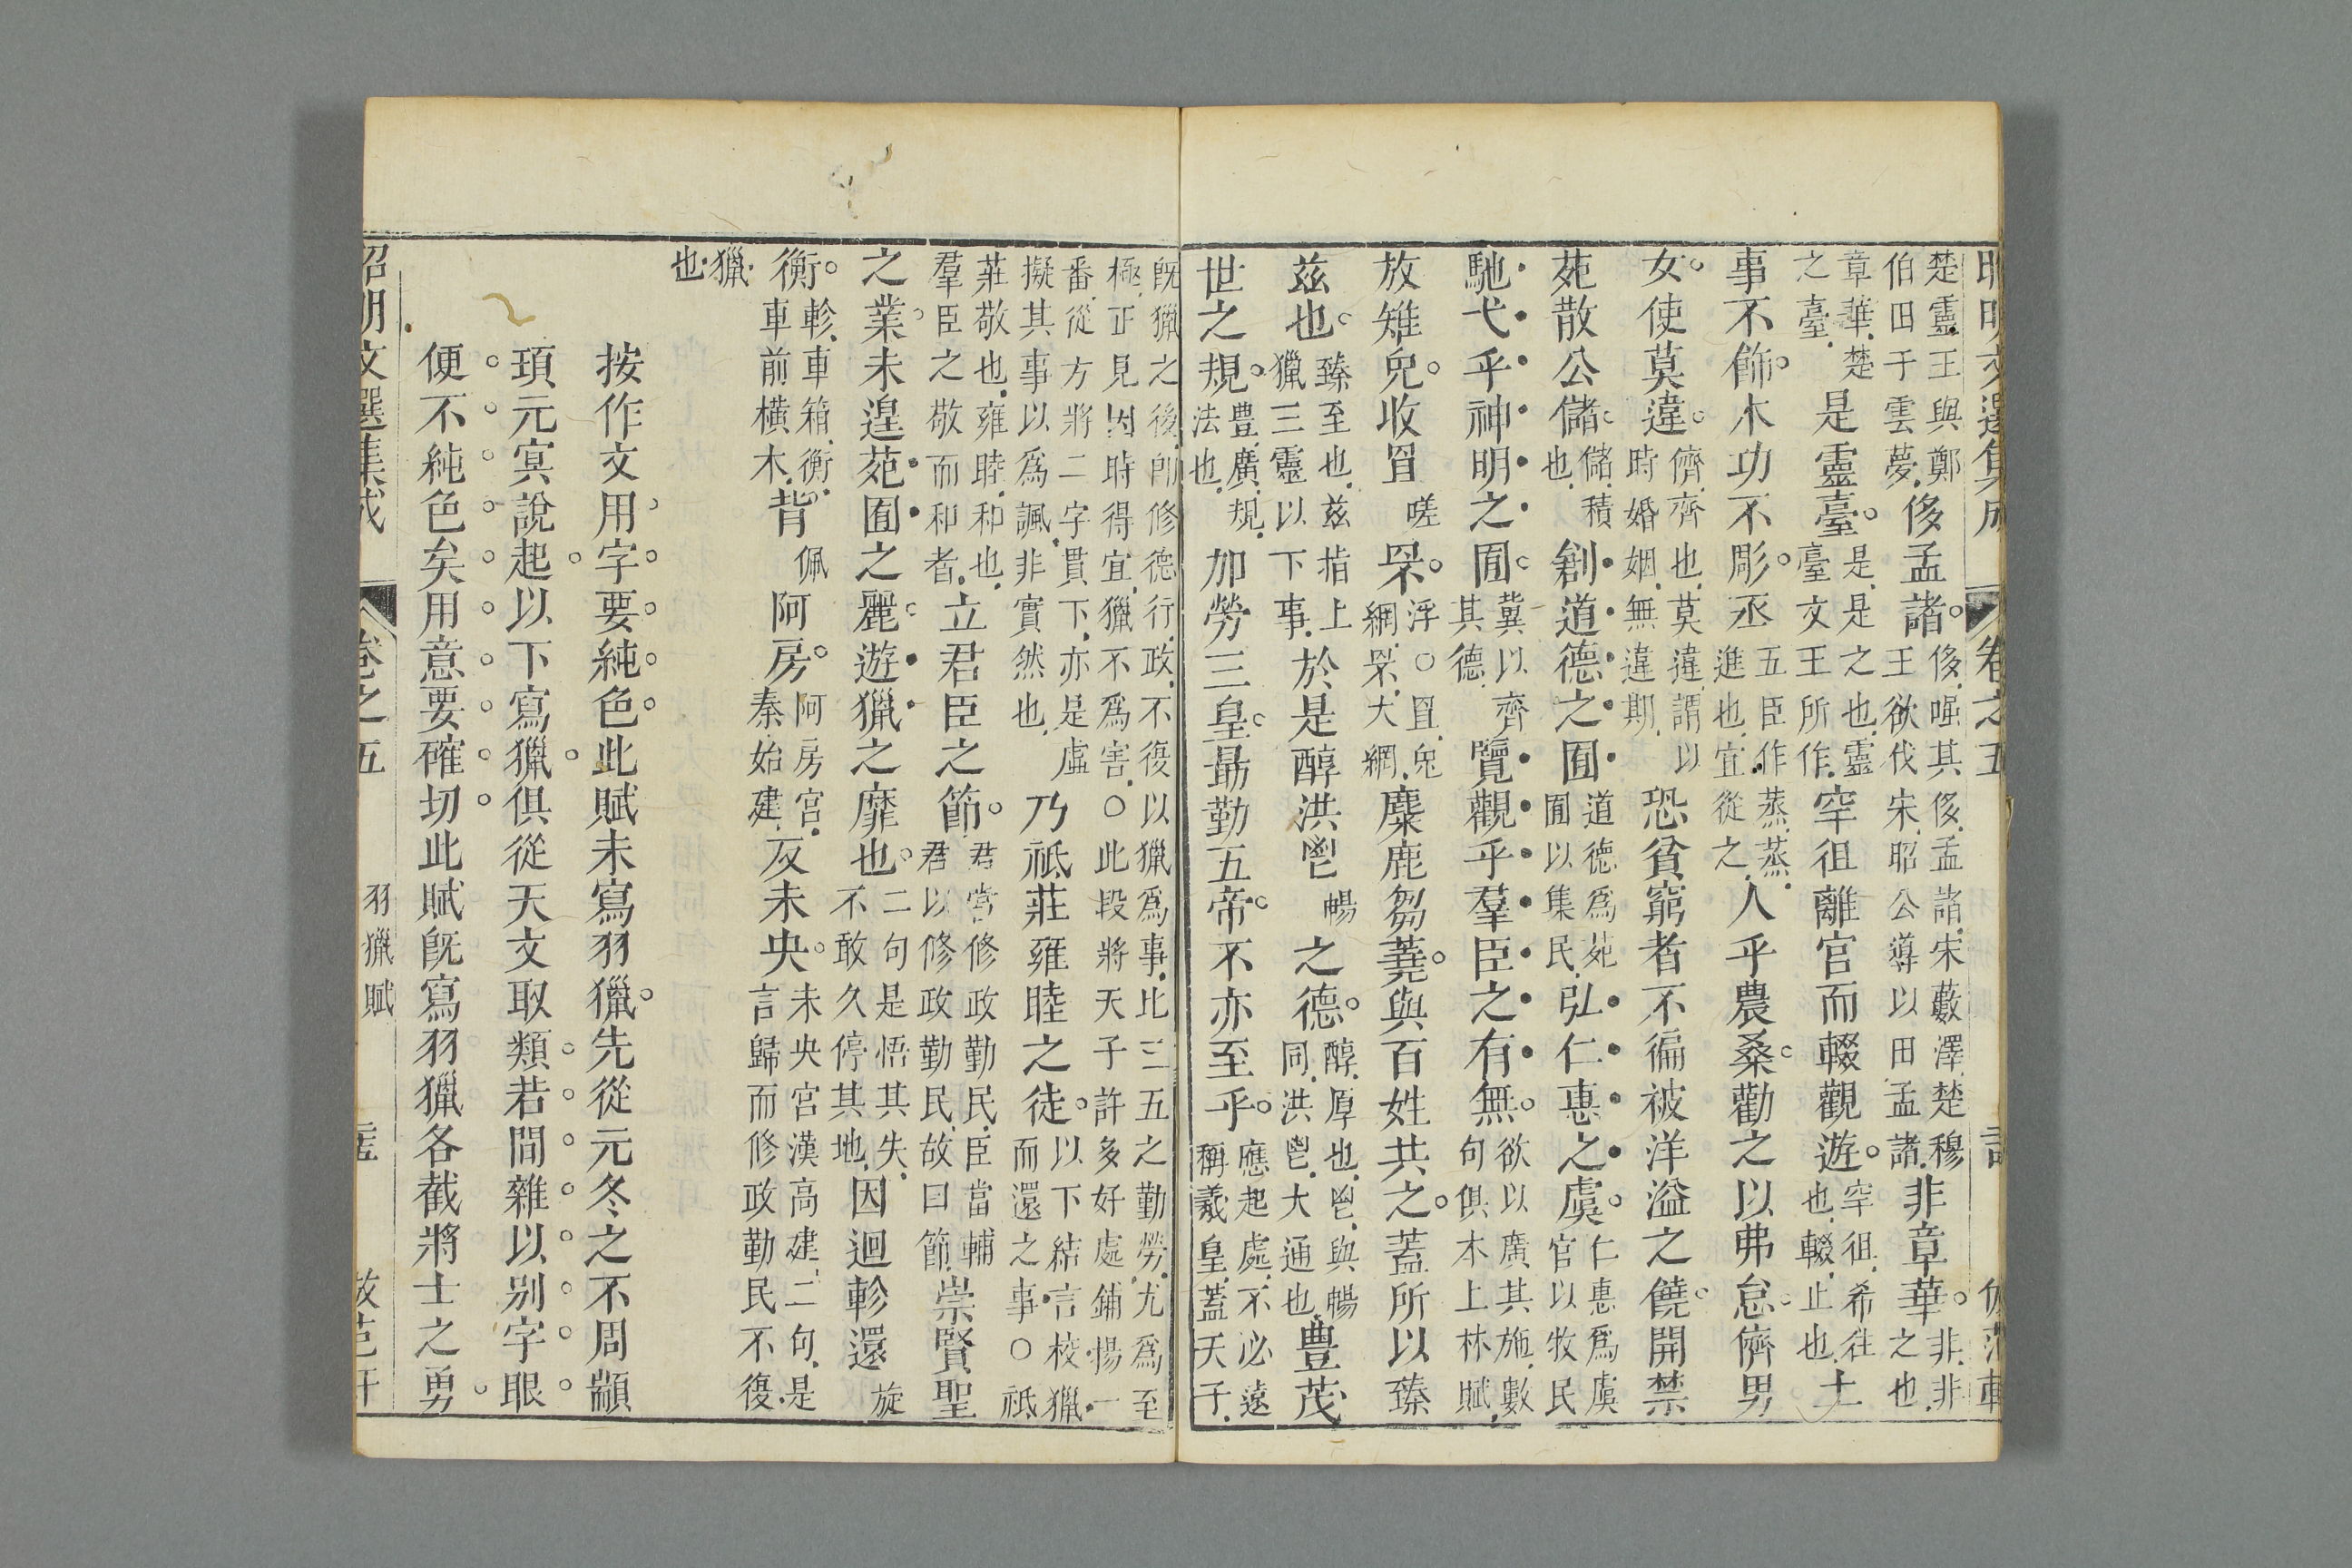 卷之五
楚靈王與鄭伯田于雲夢侈孟諸侈倔其侈孟諸宋藪澤楚穆王欲伐宋昭公導以田孟諸非章華非非之也
章華楚之臺是靈臺是是之也靈臺文王所作罕徂離宮而輟觀遊罕徂希往也輟止也土
事不飾木功不彫丞五臣作蒸蒸進也宜從之人乎農桑勸之以弗怠儕男
女使莫違儕齊也莫違謂以時婚姻無違期恐貧窮者不徧被洋溢之饒開禁
苑散公儲儲積也創道德之囿道德爲苑囿以集民弘仁惠之虞仁惠爲虞官以牧民
馳弋乎神明之囿冀以齊其德覽觀乎羣臣之有無欲以廣其施數句俱本上林賦
放雉兔收罝嗟罘浮○罝兔網罘大網麋鹿芻蕘與百姓共之蓋所以臻
茲也臻至也茲指上獵三靈以下事於是醇洪鬯暢之德醇厚也鬯與暢同洪鬯大通也豊茂
世之規豊廣規法也加勞三皇勗勤五帝不亦至乎應起處不必遠稱羲皇蓋天子
旣獵之後卽修德行政不復以獵爲事比三五之勤勞尤爲至極正見因時得宜獵不爲害○此段將天子許多好處鋪揚一
番從方將二字貫下亦是虛擬其事以爲諷非實然也乃祗莊雍睦之徒以下結言校獵而還之事○祗
莊敬也雍睦和也羣臣之敬而和者立君臣之節君當修政勤民臣當輔君以修政勤民故曰節崇賢聖
之業未遑苑囿之麗遊獵之靡也二句是悟其失不敢久停其地因迴軫還旋
衡軫車箱衡車前橫木背佩阿房阿房宮秦始建反未央未央宮漢高建二句是言歸而修政勤民不復
獵也
按作文用字要純色此賦未寫羽獵先從元冬之不周顓
頊元冥說起以下寫獵俱從天文取類若間雜以別字眼
便不純色矣用意要確切此賦旣寫羽獵各截將士之勇
昭明文選集成 卷之五 羽獵賦